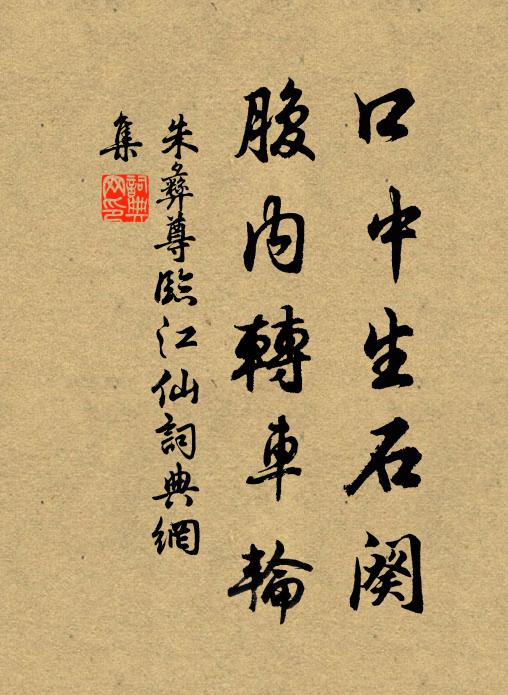 口中生石闕
腹內轉車輪
朱彝尊臨江仙詞典網
集
詞典
網印